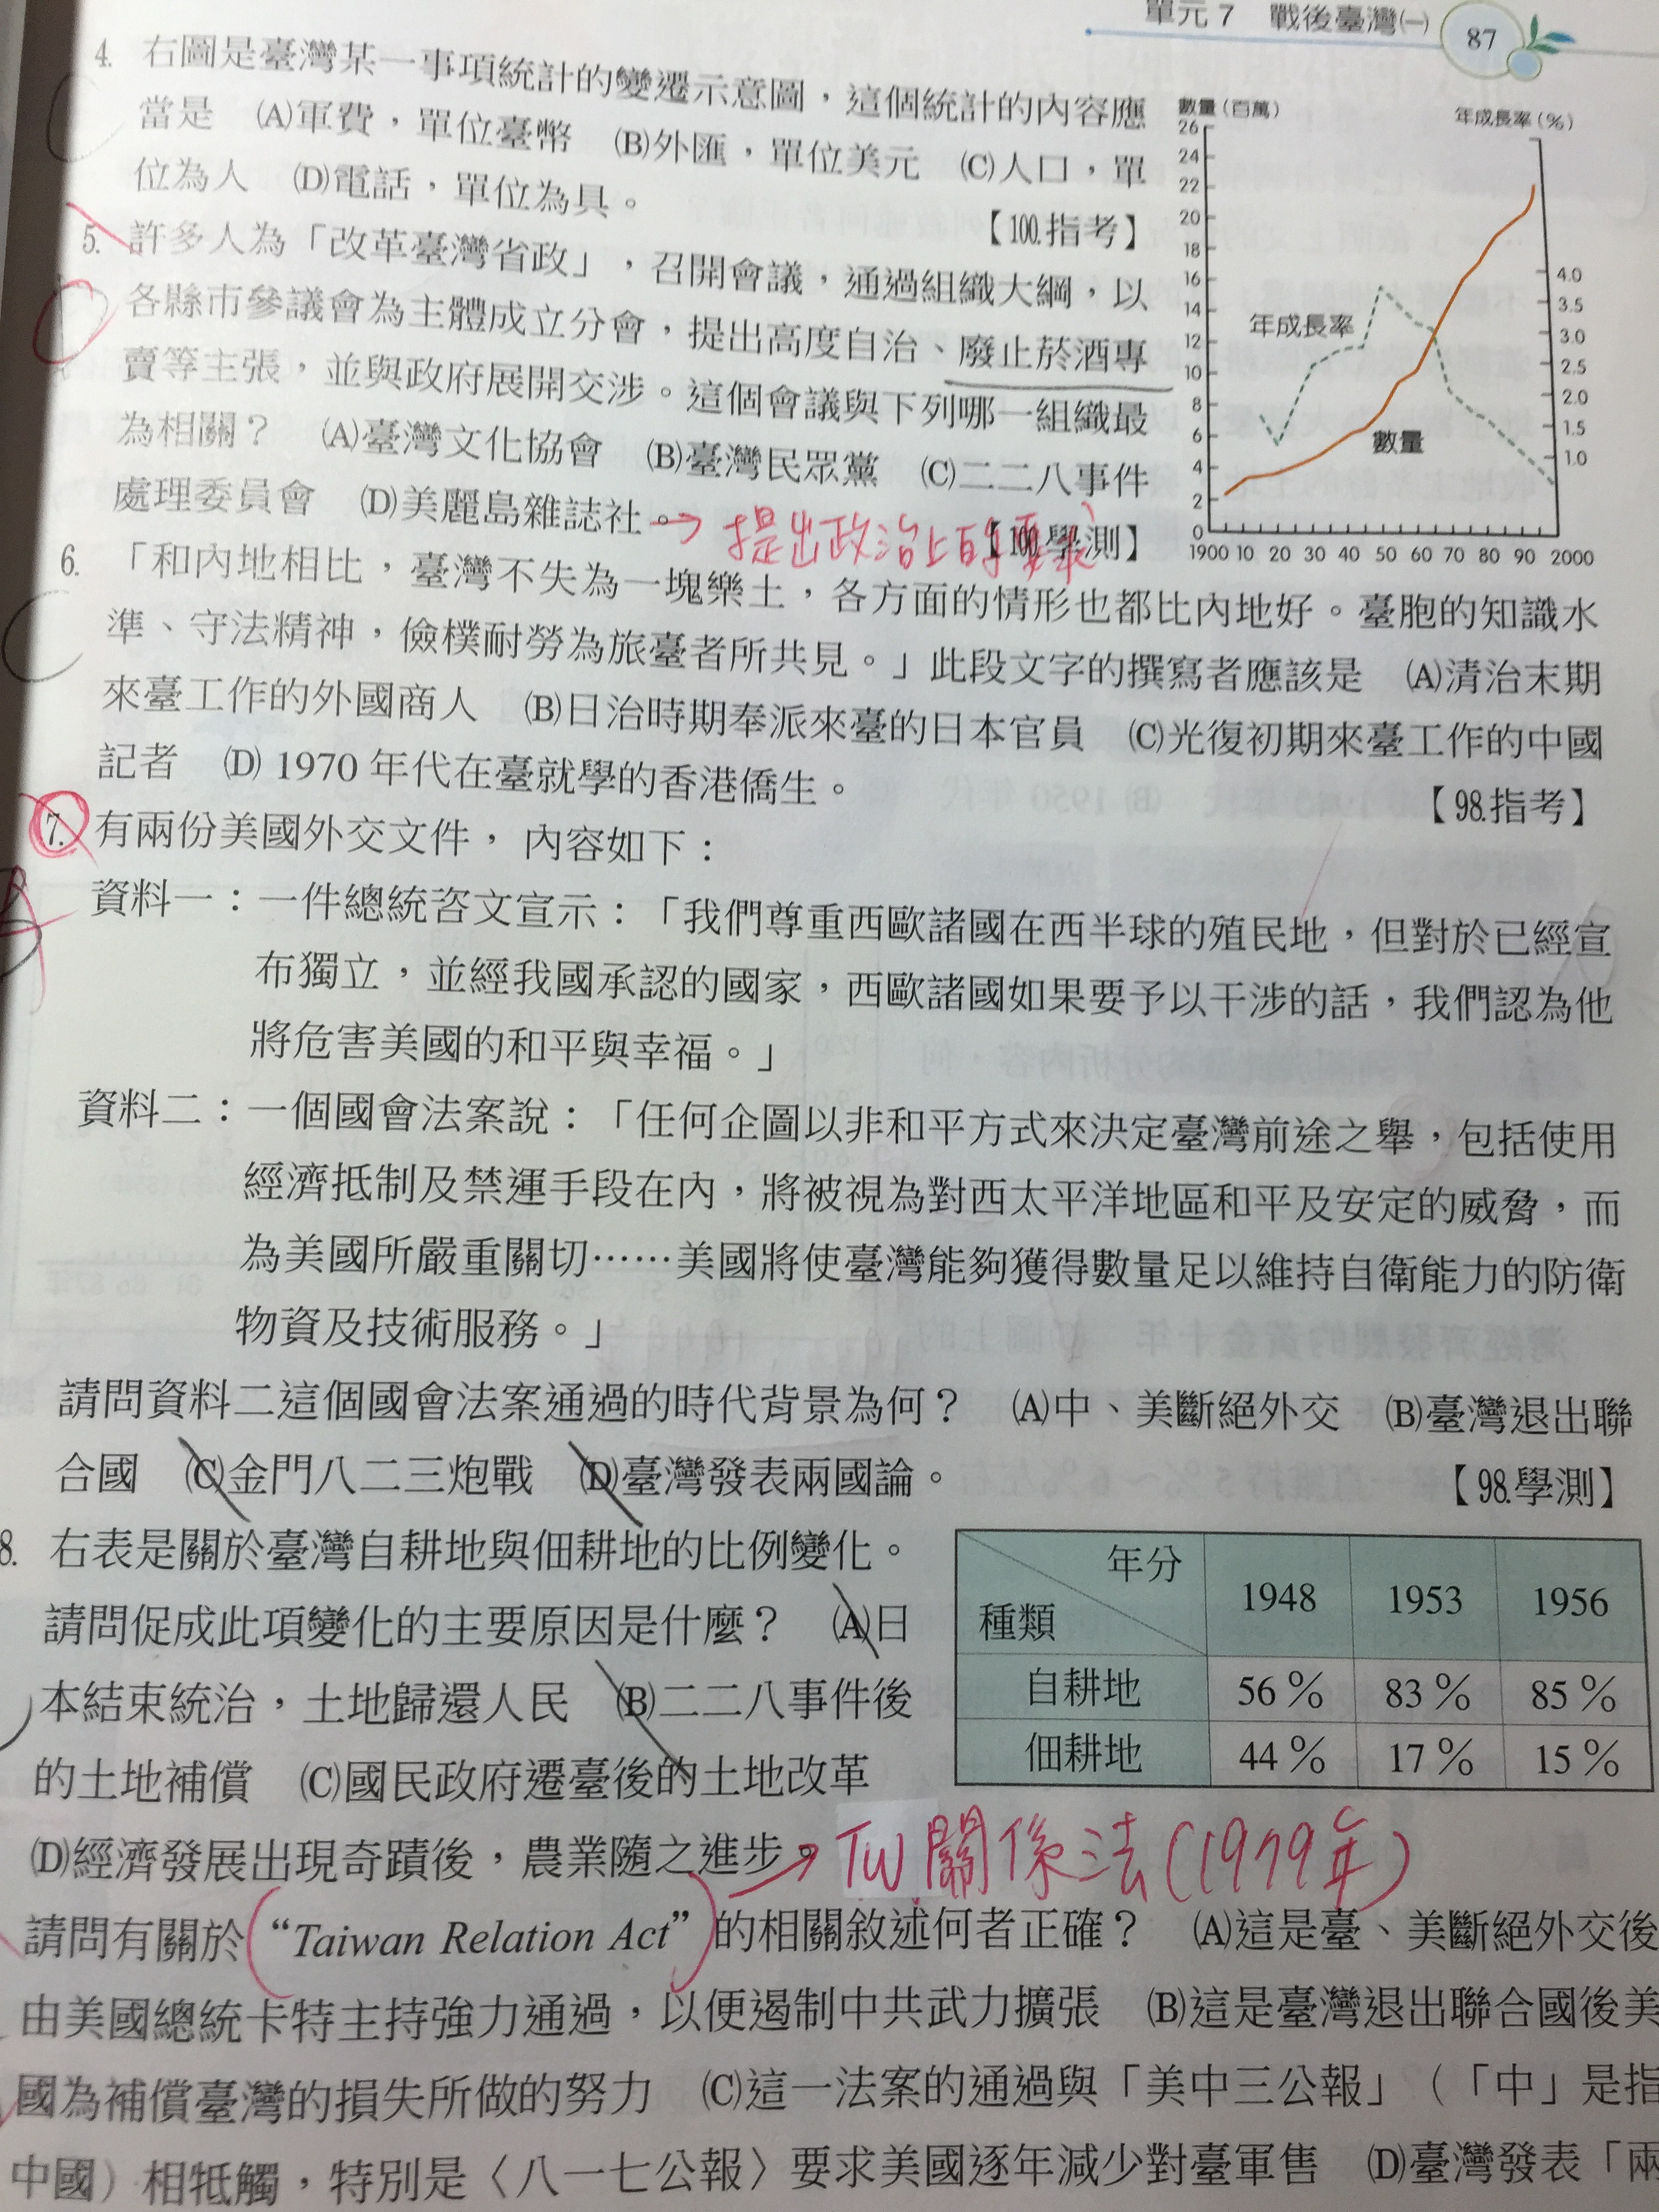 單元7 戰後臺灣㈠ 87
4. 右圖是臺灣某一事項統計的變遷示意圖，這個統計的內容應
當是 (A)軍費，單位臺幣 (B)外匯，單位美元 (C)人口，單
位為人 (D)電話，單位為具。
【100.指考】
數量(百萬)
年成長率(%)
26
24
22
20
18
16
14
12
10
8
6
4
2
0
4.0
3.5
3.0
2.5
2.0
1.5
1.0
年成長率
數量
1900 10 20 30 40 50 60 70 80 90 2000
5. 許多人為「改革臺灣省政」，召開會議，通過組織大綱，以
各縣市參議會為主體成立分會，提出高度自治、廢止菸酒專
賣等主張，並與政府展開交涉。這個會議與下列哪一組織最
為相關？ (A)臺灣文化協會 (B)臺灣民眾黨 (C)二二八事件
處理委員會 (D)美麗島雜誌社。
→ 提出政治上的要求
【100.學測】
6. 「和內地相比，臺灣不失為一塊樂土，各方面的情形也都比內地好。臺胞的知識水
準、守法精神，儉樸耐勞為旅臺者所共見。」此段文字的撰寫者應該是 (A)清治末期
來臺工作的外國商人 (B)日治時期奉派來臺的日本官員 (C)光復初期來臺工作的中國
記者 (D) 1970 年代在臺就學的香港僑生。
【98.指考】
7. 有兩份美國外交文件，內容如下：
資料一：一件總統咨文宣示：「我們尊重西歐諸國在西半球的殖民地，但對於已經宣
布獨立，並經我國承認的國家，西歐諸國如果要予以干涉的話，我們認為他
將危害美國的和平與幸福。」
資料二：一個國會法案說：「任何企圖以非和平方式來決定臺灣前途之舉，包括使用
經濟抵制及禁運手段在內，將被視為對西太平洋地區和平及安定的威脅，而
為美國所嚴重關切……美國將使臺灣能夠獲得數量足以維持自衛能力的防衛
物資及技術服務。」
請問資料二這個國會法案通過的時代背景為何？ (A)中、美斷絕外交 (B)臺灣退出聯
合國 (C)金門八二三炮戰 (D)臺灣發表兩國論。
【98.學測】
8. 右表是關於臺灣自耕地與佃耕地的比例變化。
請問促成此項變化的主要原因是什麼？ (A)日
本結束統治，土地歸還人民 (B)二二八事件後
的土地補償 (C)國民政府遷臺後的土地改革
(D)經濟發展出現奇蹟後，農業隨之進步。
年分 種類 1948 1953 1956
自耕地 56％ 83％ 85％
佃耕地 44％ 17％ 15％
→ TW 關係法(1979年)
請問有關於“Taiwan Relation Act”的相關敘述何者正確？ (A)這是臺、美斷絕外交後
由美國總統卡特主持強力通過，以便遏制中共武力擴張 (B)這是臺灣退出聯合國後美
國為補償臺灣的損失所做的努力 (C)這一法案的通過與「美中三公報」（「中」是指
中國）相牴觸，特別是〈八一七公報〉要求美國逐年減少對臺軍售 (D)臺灣發表「兩